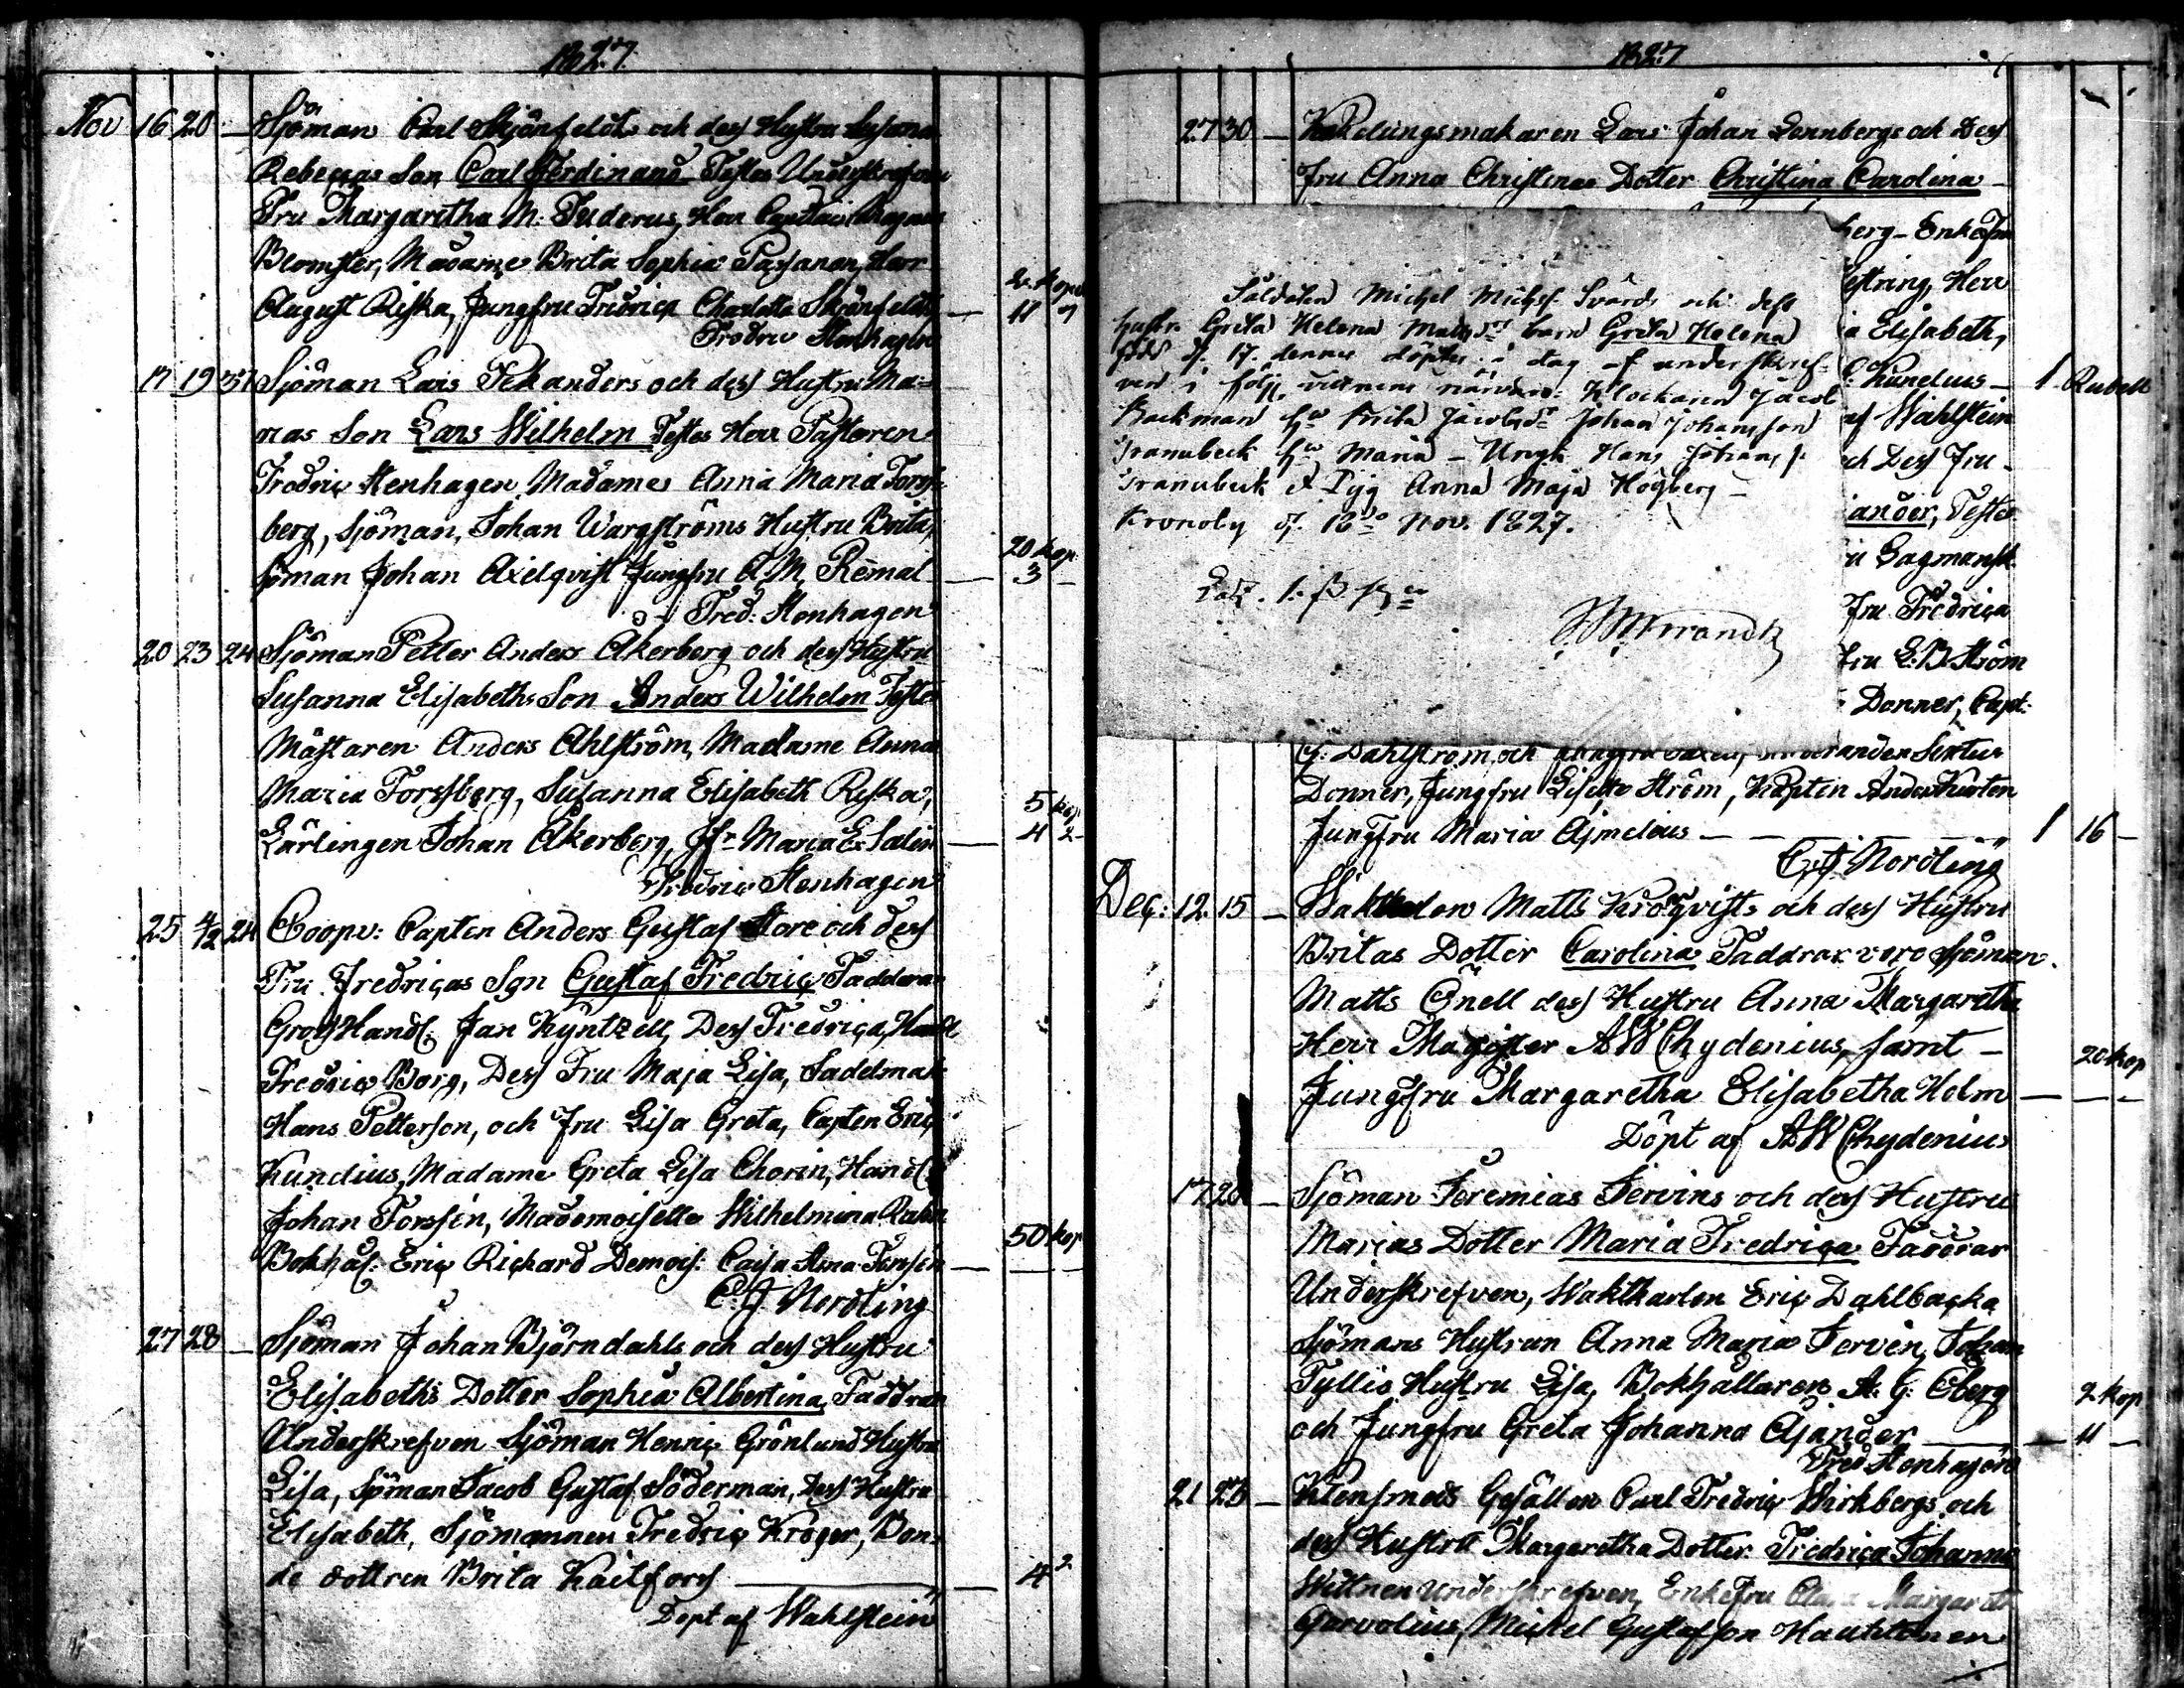 1827
Nov 16 20 — Sjöman Carl Skjönfeldts och dess Hustru Susana
Rebeccas Son Carl Ferdinand Testes Underskrefven
Fru Margaretha M. Tuderus, Herr Capitain Magnus
Blomster, Madame Brita Sophia Passanan, Herr
August Riska, Jungfru Fredrica Charlotta Skönfeldt — 11
Fredric Stenhagen
17 19 31 Sjöman Lars Pekanders och dess Hustru Ma=
rias Son Lars Wilhelm Testes Herr Pastoren
Fredric Stenhagen, Madame Anna Maria Forss
berg, Sjöman, Johan Wargströms Hustru Brita,
20 kop
Söman Johan Axelqvist Jungfru A. M. Remal — 3 —
Fred: Stenhagen
20 23 24 Sjöman Petter Anders Åkerberg och dess Hustru
Susanna Elisabeths Son Anders Wilhelm Testes
Mästaren Anders Ahlström, Madame Anna
Maria Forssberg, Susanna Elisabeth Riska, 5 kop
Lärlingen Johan Åkerberg, Jfr Maria E. Salin — 4 2
Fredric Stenhagen
25 4/12 24 Coopv: Capten Anders Gustaf Store och dess
Fru Fredricas Son Gustaf Fredric Faddrar
GrossHandl: Jan Kyntzell, Dess Fredrica, Handl
Fredric Borg, Dess Fru Maja Lisa, Sadelmak
Hans Petterson, och Fru Lisa Greta, Capten Eric
Kunelius, Madame Greta Lisa Chorin, Handl
Johan Forssén, Mademoiselle Wilhelmina Rahm
50 kop
Bokhål: Eric Rickard Demois: Caisa Stina Forssén —
C. J. Nordling
27 28 — Sjöman Johan Björndahls och dess Hustru
Elisabeths Dotter Sophia Albertina, Faddrar
Underskrefven Sjöman Henric Grönlund Hustru
Lisa, Sjöman Jacob Gustaf Söderman, Dess Hustru
Elisabeth, Sjömannen Fredric Kroger, Bon=
de dottren Brita Kaitfors — 4 2
Döpt af Wahlstein
1827
27 30 — Kakelungsmakaren Lars Johan Lennbergs och Dess
Fru Anna Christinas Dotter Christina Carolina
berg – EnkeFru
estring, Herr
a Elisabeth,
Kunelius — 1 Rubell
af Wahlstein
ch Dess Fru
ander, Testes
u Lagmansk
Fru Fredrica
Fru E. B. Ström
Donner, Capt:
Soldaten Michel Michelss. Svärds och dess
hustru Greta Helena Matsdr barn Greta Helena
född d. 17. dennes döptes i dag af underskref=
ven i följ. vittnens närvaro: Klockaren Jacob
Backman hu Brita Jacobsdr Johan Johansson
Tranubeck hu Maria – Ungk. Hans Johanss.
Tranubeck & Pig. Anna Maja Högberg –
Kronoby d. 18 Nov. 1827.
G. Dahlström, och
Donner, Jungfru Lisette Ström, Kapten Anders Kurten
Jungfru Maria Ajmelaus — 1 16 —
C. J. Nordling
Dec: 12. 15 — Waktkarlen Matts Kronqvists och dess Hustru
Britas Dotter Carolina Faddrar voro Sjöman
Matts Önell dess Hustru Anna Margaretha
Herr Magister A W Chydenius, samt — 20 kop
Jungfru Margaretha Elisabetha Holm —
Döpt af A W Chydenius
17 20 — Sjöman Jeremias Jervins och dess Hustru
Marias Dotter Maria Fredrica Faddrar
Underskrefven, Waktkarlen Eric Dahlbacka
Sjömans Hustrun Anna Maria Jervin, Johan
Tyllis Hustru Lisa, Bokhållaren A. G. Öberg 2 kop
och Jungfru Greta Johanna Ajander — 11 —
Fred Stenhagen
21 26 — Klensmeds Gesällen Carl Fredric Wirkbergs och
dess Hustru Margaretha Dotter Fredrica Johanna
Wittnen Underskrefven, EnkeFru Clara Margareta
Garvolius, Michel Gustafsson Hauhtonen